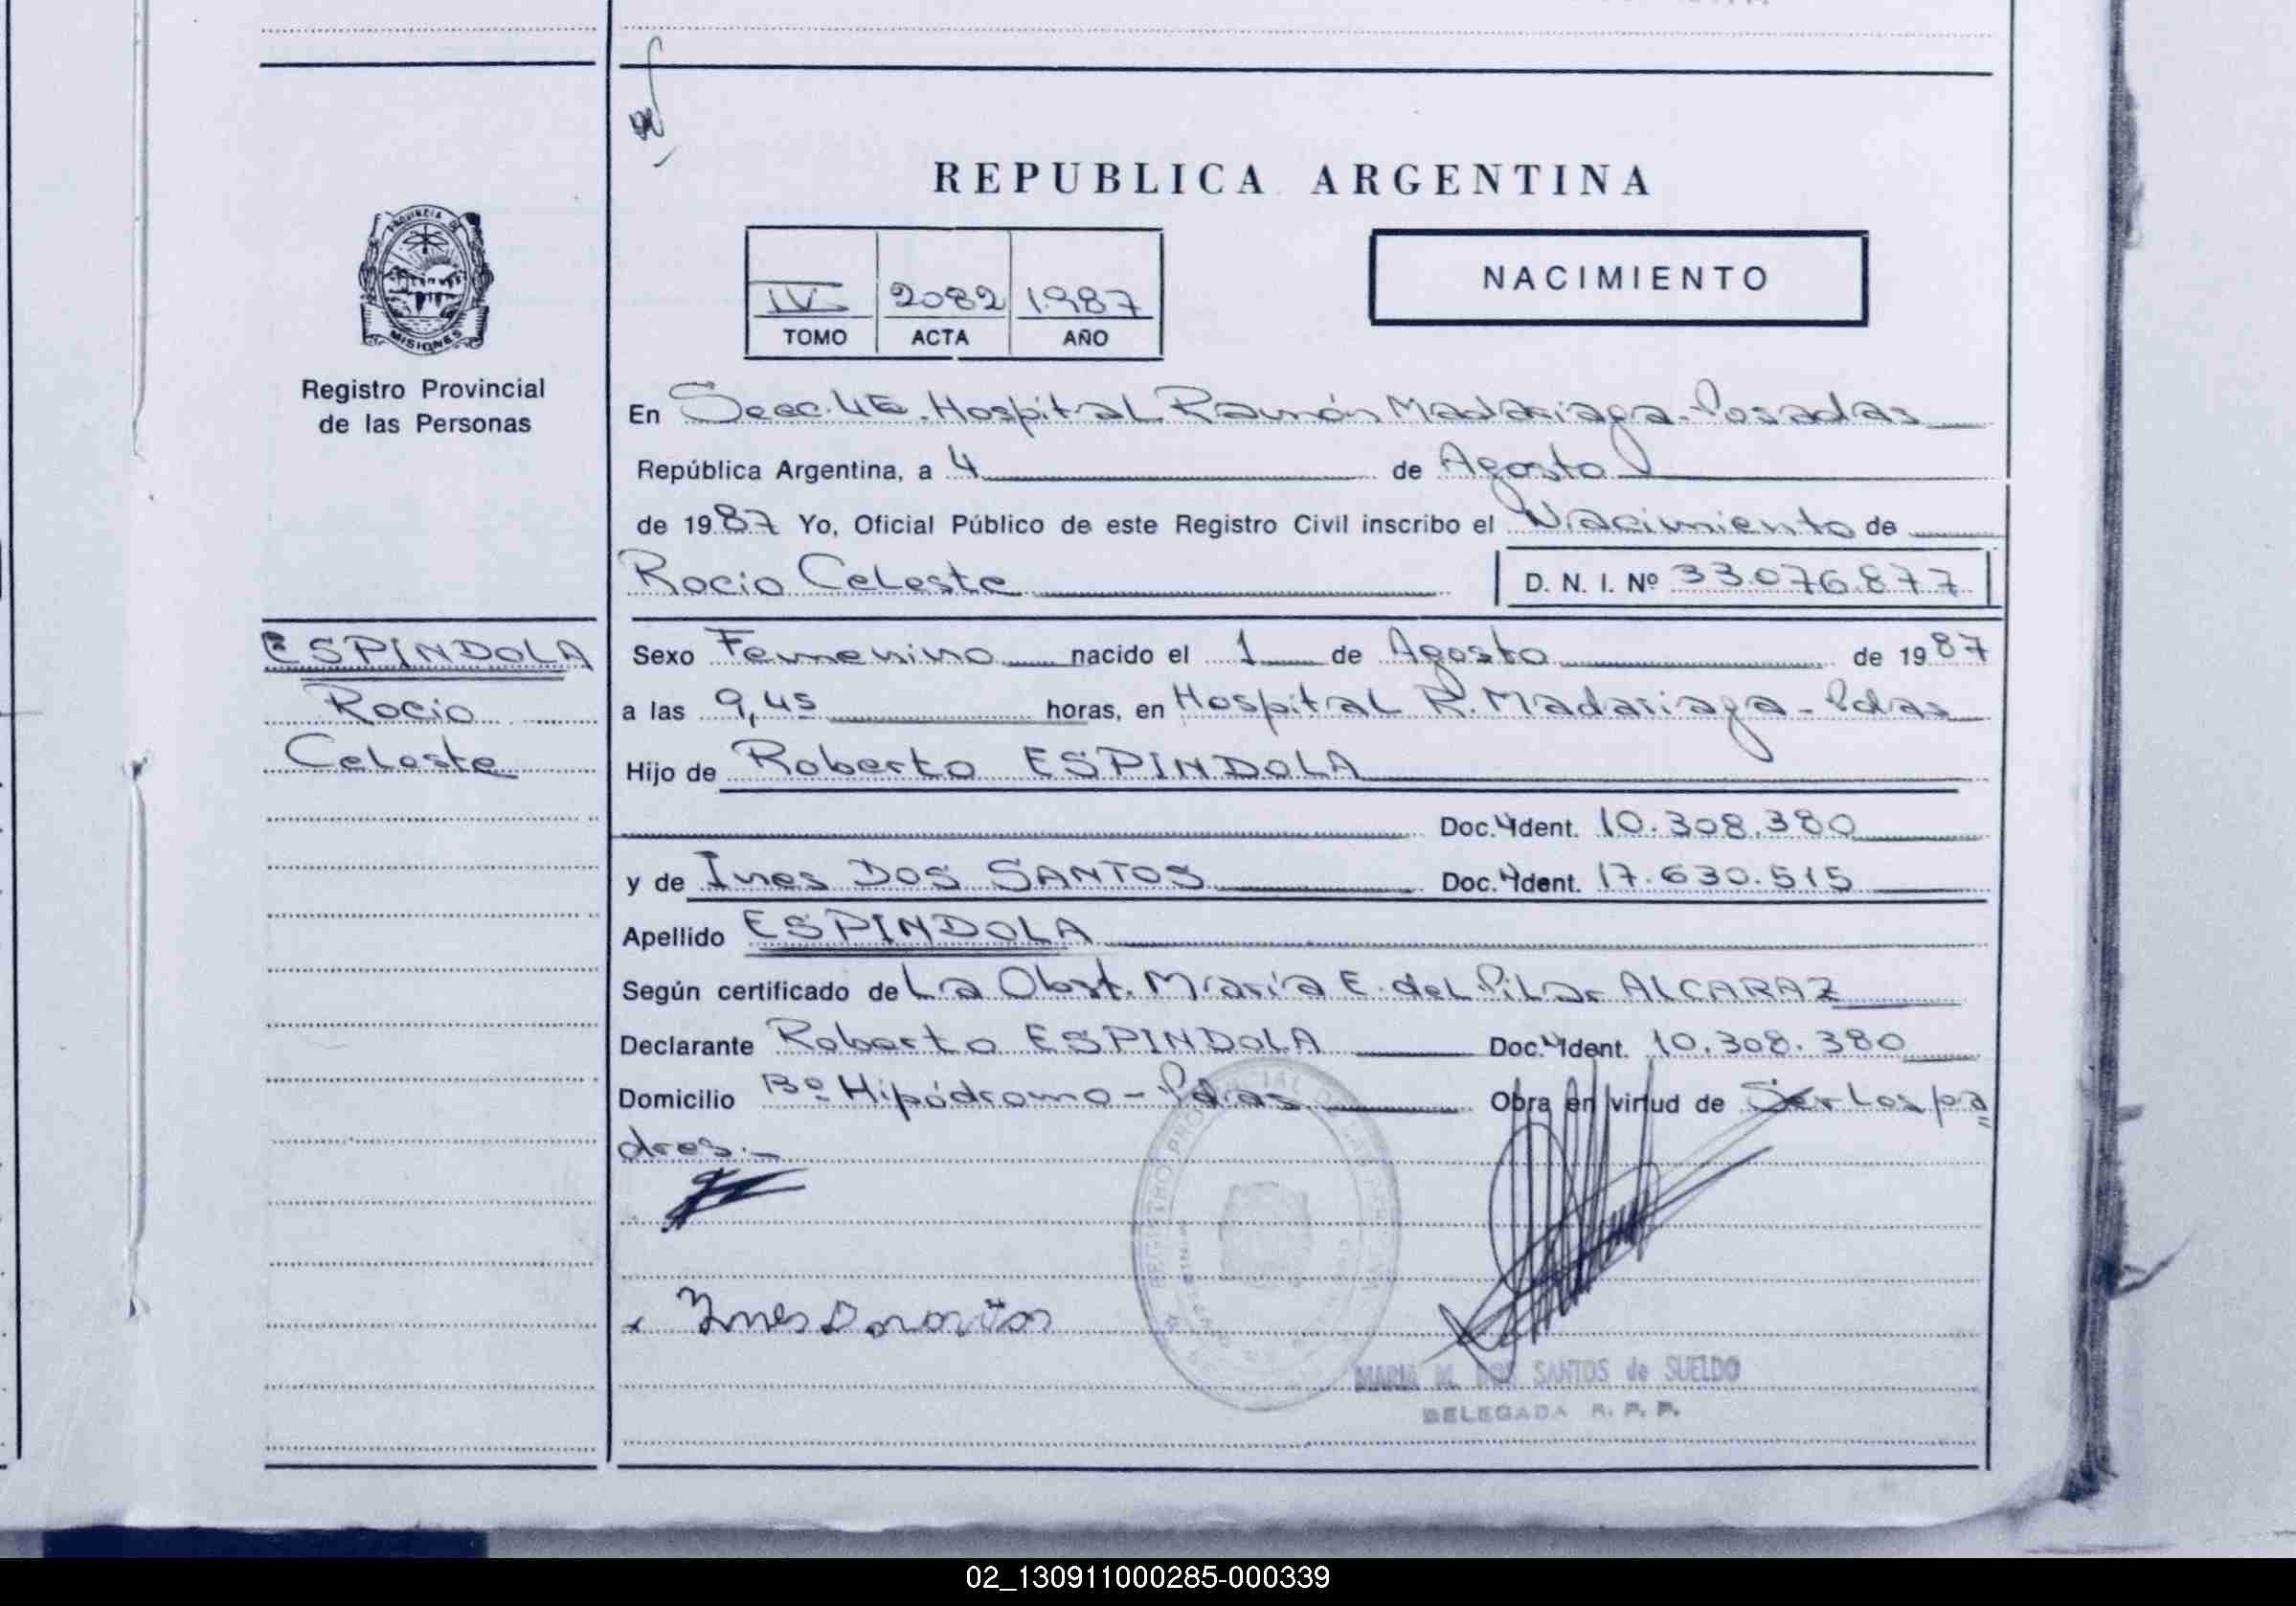 REPUBLICA ARGENTINA
PROVINCIA DE
MISIONES
Registro Provincial
de las Personas
IV 2082 1987
TOMO ACTA AÑO
NACIMIENTO
En Secc. 4ta. Hospital Ramón Madariaga - Posadas
República Argentina, a 4 de Agosto
de 1987 Yo, Oficial Público de este Registro Civil inscribo el Nacimiento de
Rocio Celeste D. N. I. Nº 33.076.877
ESPINDOLA
Rocio
Celeste
Sexo Femenino nacido el 1 de Agosto de 1987
a las 9,45 horas, en Hospital R. Madariaga - Pdas
Hijo de Roberto ESPINDOLA
Doc. Ident. 10.308.380
y de Ines DOS SANTOS Doc. Ident. 17.630.515
Apellido ESPINDOLA
Según certificado de La Obst. María E. del Pilar ALCARAZ
Declarante Roberto ESPINDOLA Doc. Ident. 10.308.380
Domicilio Bº Hipódromo - Pdas Obra en virtud de Ser los pa
dres.-
MARIA M. DOS SANTOS de SUELDO
DELEGADA R. P. P.
02_130911000285-000339